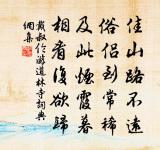 佳山路不遠
俗侶到常稀
及此煙霞暮
相看復欲歸
戴叔倫游道林寺詞典
網集